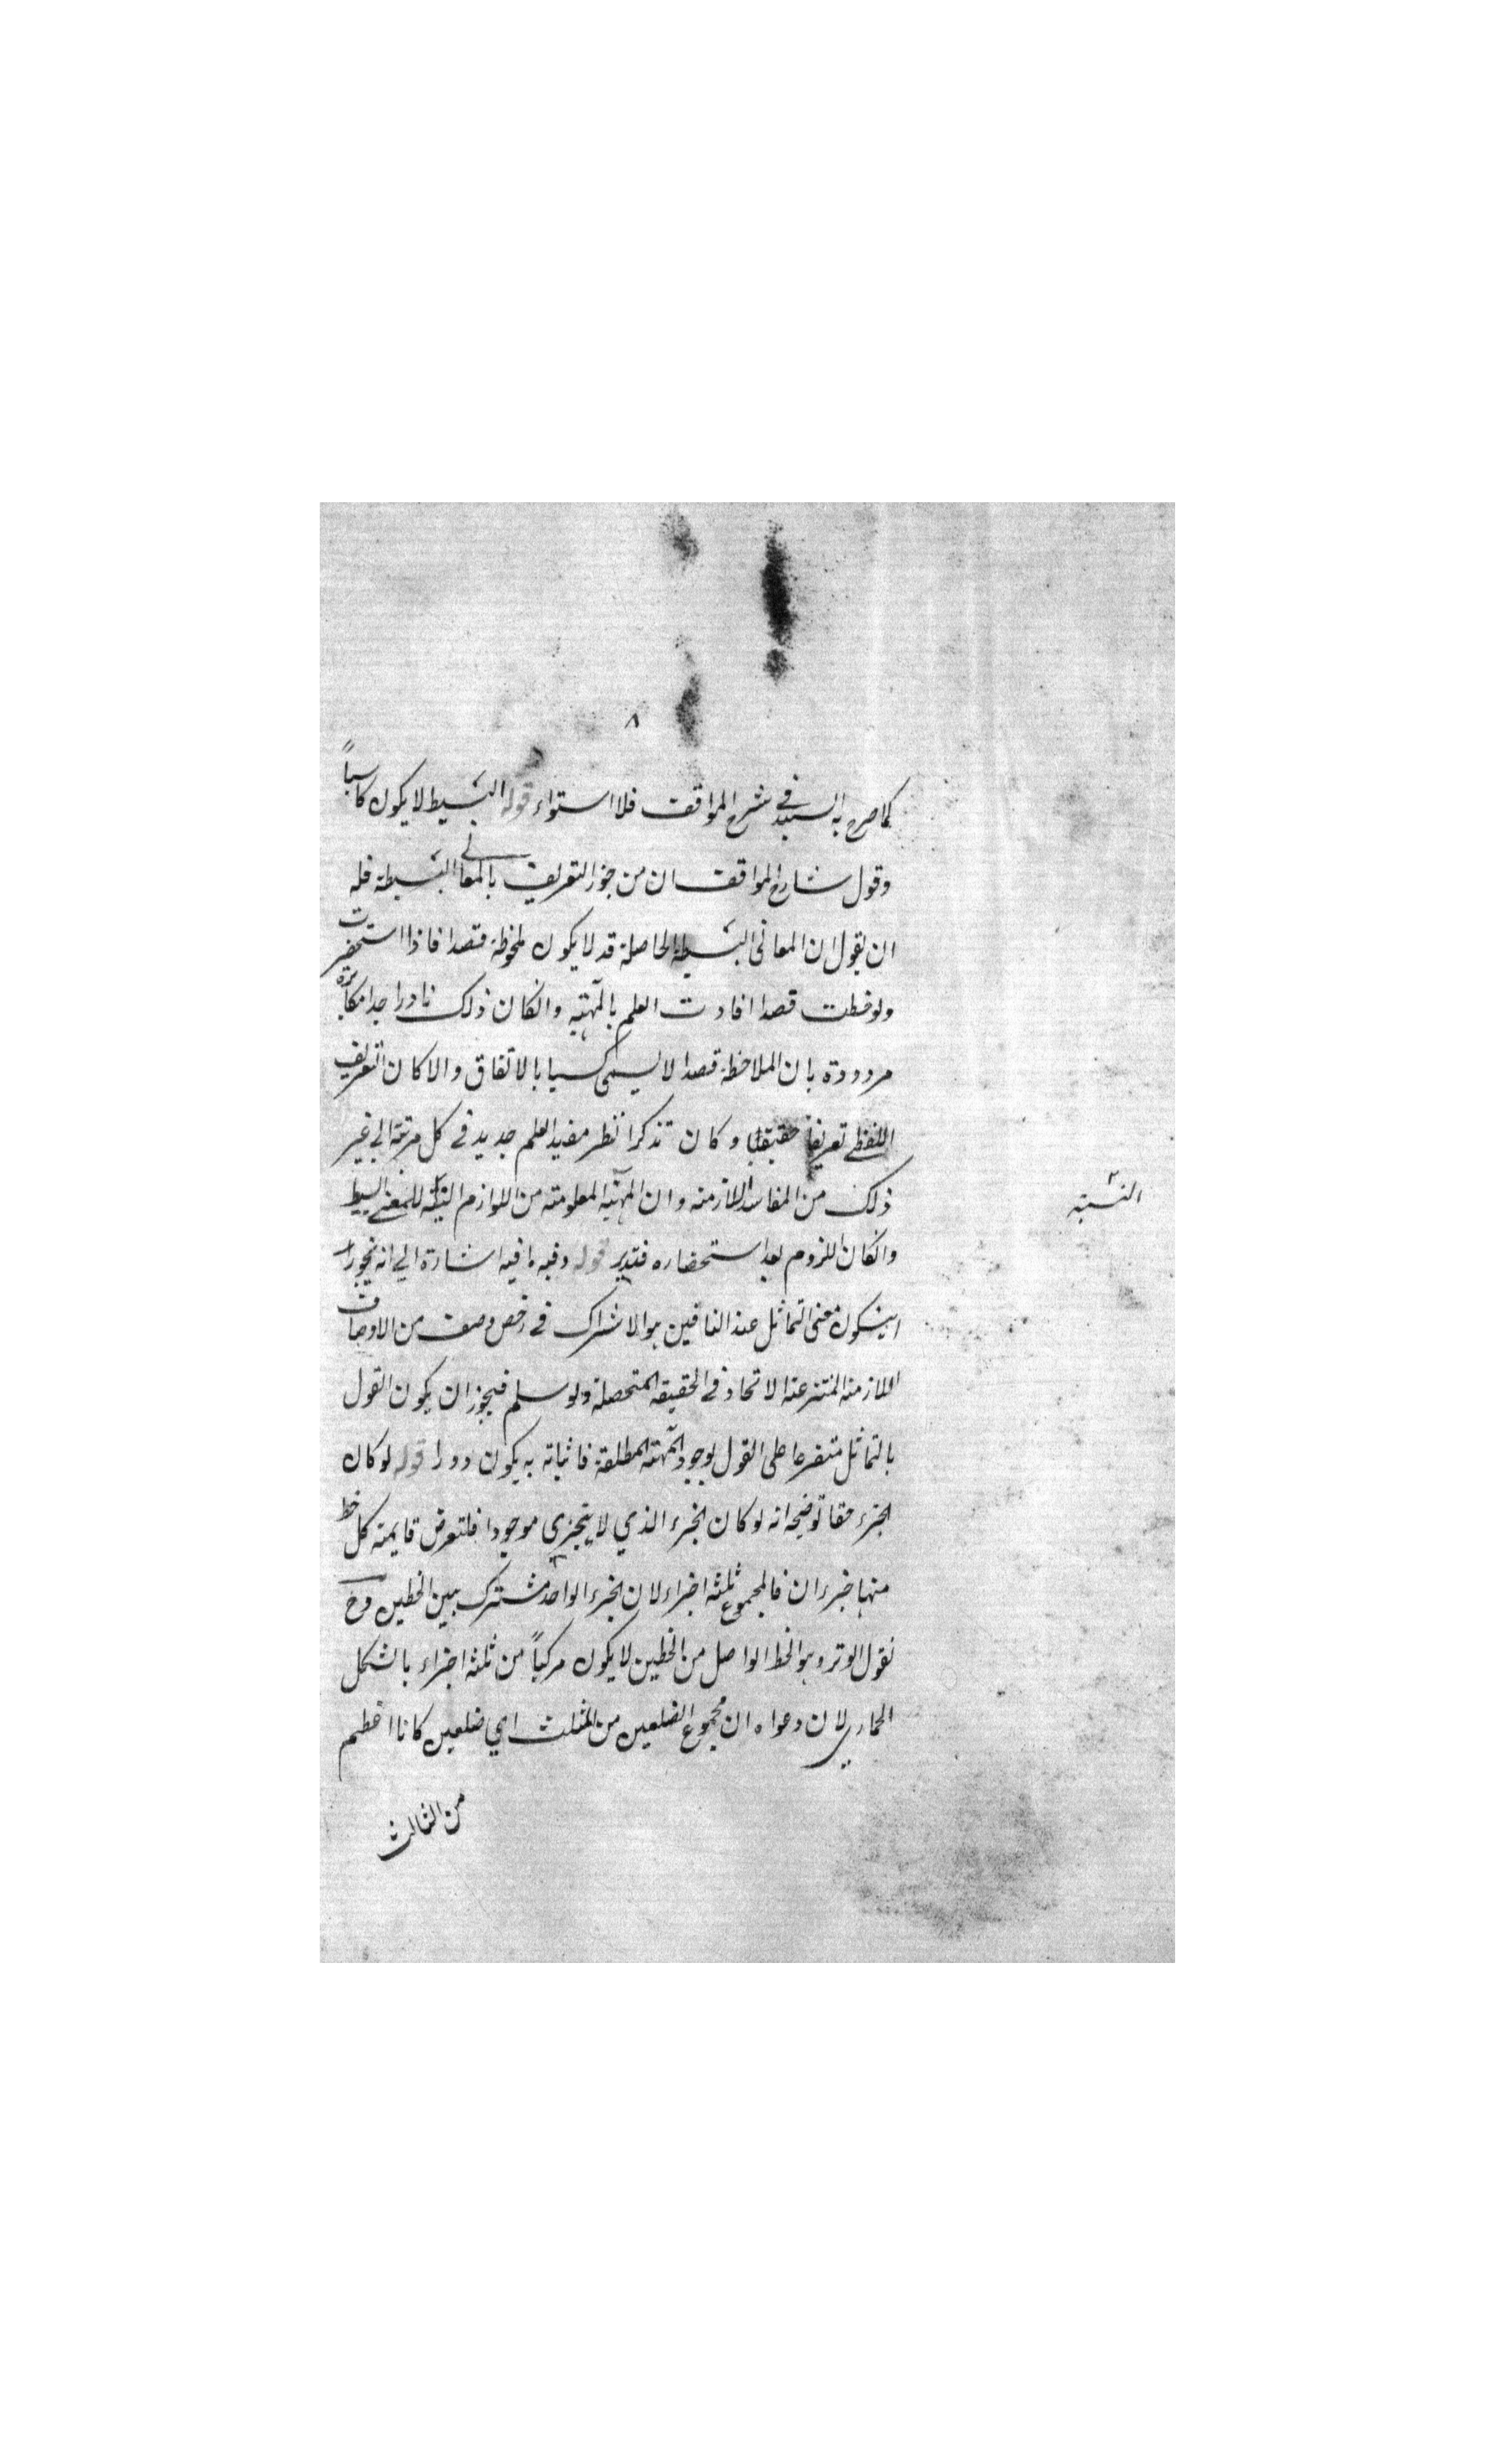 ٨
كما صرح به السيد في شرح المواقف فلا استواء قوله البسيط لا يكون كاسباً
وقول شارح المواقف ان من جوز التعريف بالمعاني البسيطة فله
ان يقول ان المعانى البسيطة الحاصلة قد لا يكون ملحوظة قصدا فاذا استحضرت
ولوحظت قصدا افادت العلم بالمهية وانكان ذلك نادرا جدا مكابرة
مردودة بان الملاحظة قصدا لا يسمى كسبا بالاتفاق والا كان التعريف
اللفظي تعريفا حقيقيا وكان تذكر النظر مفيدا لعلم جديد في كل مرتبة الي غير
ذلك من المفاسد اللازمة وان المهية المعلومة من اللوازم البينة للمعنى البسيط
النسبة
وانكان اللزوم بعد استحضاره فتدبر قوله وفيه ما فيه اشارة الي انه يجوز
ان يكون معنى التماثل عند النافين هو الاشتراك في اخص وصف من الاوصاف
اللازمة المنتزعة لا الاتحاد في الحقيقة المتحصلة ولو سلم فيجوز ان يكون القول
بالتماثل متفرعا على القول بوجود المهية المطلقة فاثباته به يكون دورا قوله لو كان
الجزء حقا توضيحه انه لو كان الجزء الذي لا يتجزي موجودا فلتعرض قايمة كل خط
منها جزءان فالمجموع ثلثة اجزاء لان الجزء الواحد مشترك بين الخطين وح
نقول الوتر وهو الخط الواصل من الخطين لا يكون مركباً من ثلثة اجزاء بالشكل
الحماري لان دعواه ان مجموع الضلعين من المثلث اي ضلعين كانا اعظم
من الثالث